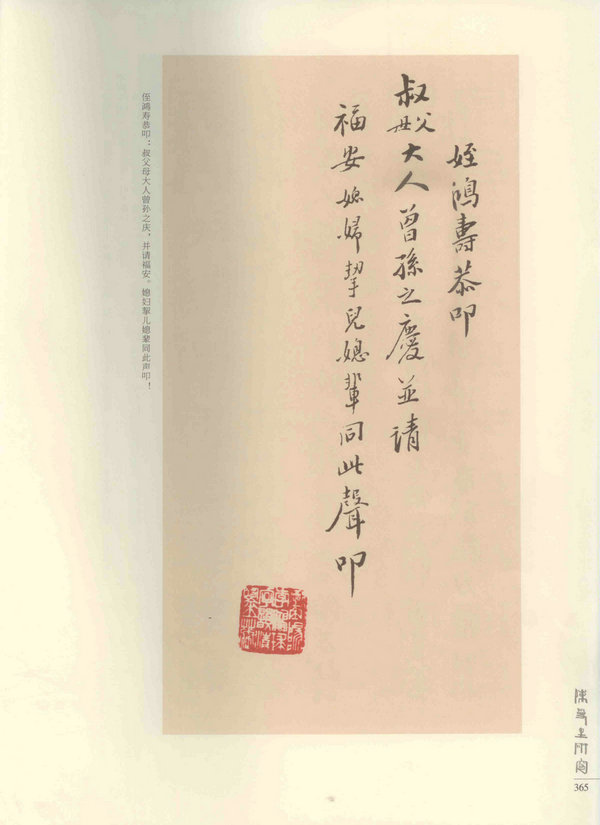 姪鴻壽恭叩
叔父母大人曾孫之慶並请
福安媳婦挈兒媳輩同此聲叩
侄鸿寿恭叩：叔父母大人曾孙之庆，并请福安。媳妇挈儿媳辈同此声叩！
365